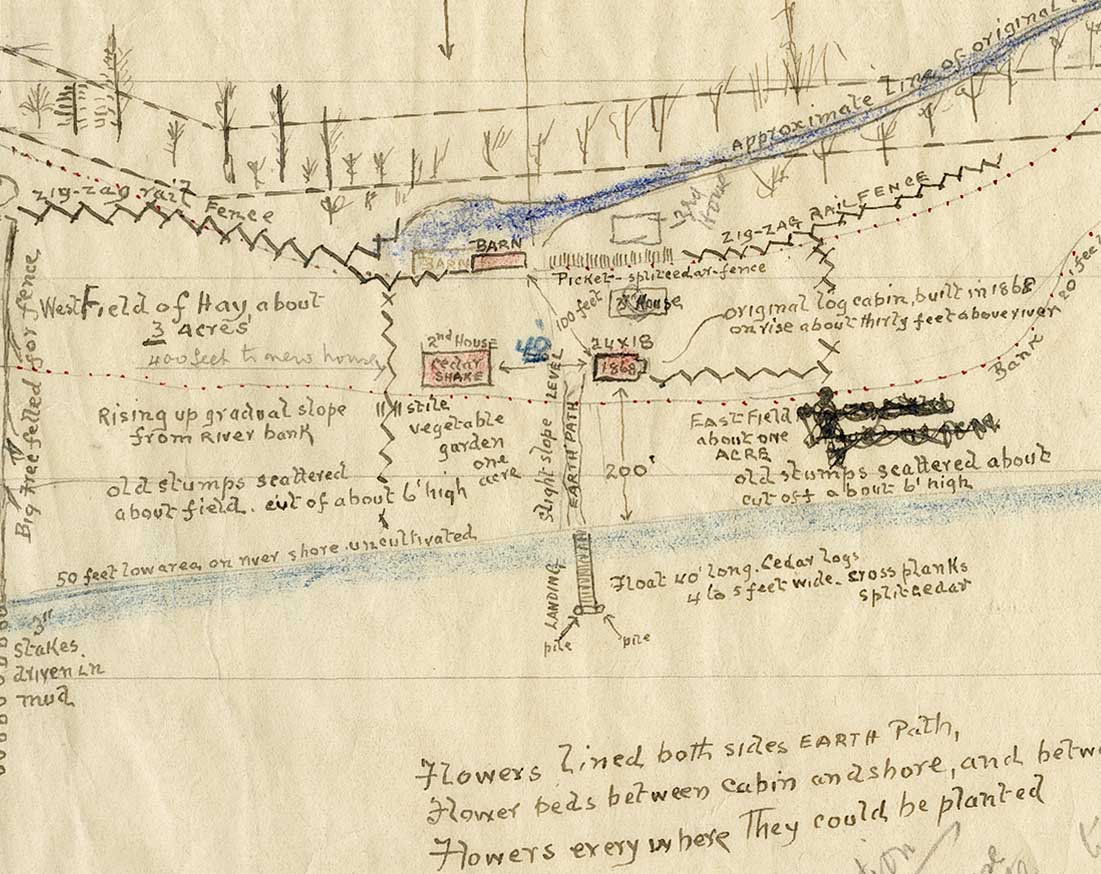 Approximate Line of original
zig-zag rail Fence
3rd House
ZIG-ZAG RAIL FENCE
BARN
BARN
Picket-splitcedar-fence
100 feet
House
20' feet
West Field of Hay, about
3 acres
400 feet to new house
original log cabin, built in 1868
on rise about thirty feet above river
2nd House
Cedar
SHAKE
40'
24x18
1868
Bank
Big tree felled for fence
Rising up gradual slope
from River bank
stile
vegetable
garden
one
acre
Slight slope LEVEL
EARTH PATH
200'
EAST Field
about one
ACRE
old stumps scattered
about field. cut of about 6' high
old stumps scattered about
cut off about 6' high
50 feet low area on river shore uncultivated
LANDING
Float 40' long. Cedar Logs
4 to 5 feet wide. cross planks
split cedar
pile
pile
3"
Stakes
driven in
mud
Flowers lined both sides EARTH Path,
Flower beds between cabin and shore, and betw
Flowers every where They could be planted